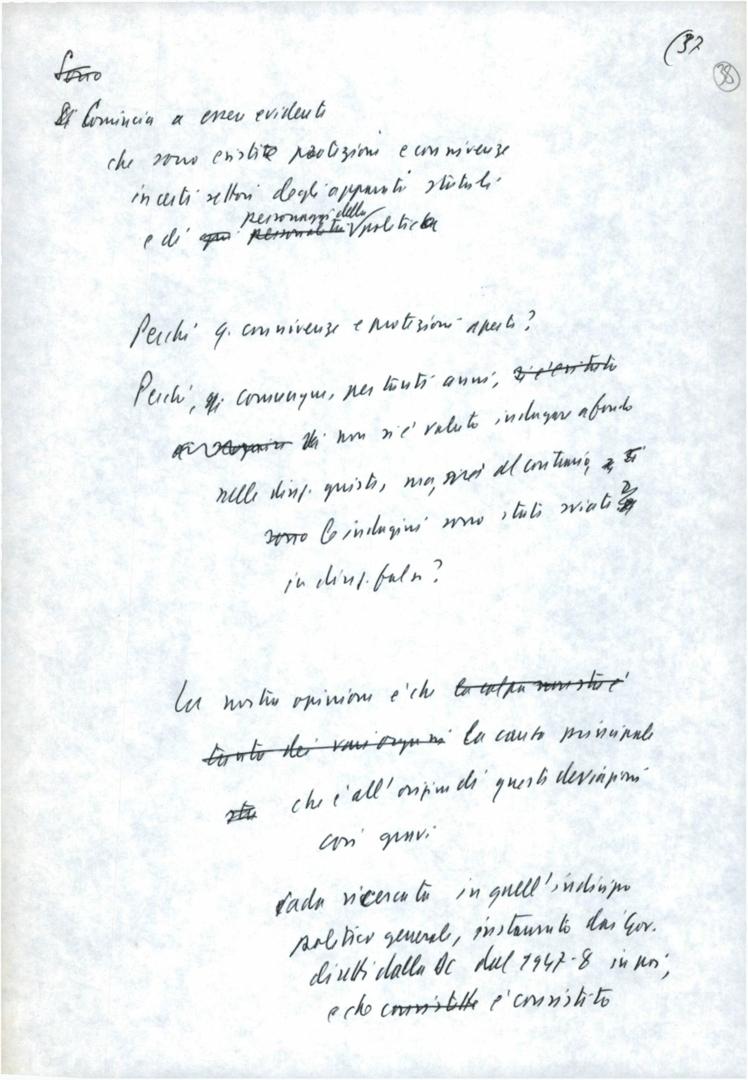 (37
38
Sono
Comincia a esser evidente
che sono esistite protezioni e connivenze
in certi settori degli apparati statali
personaggi della
e di personalità politica
Perché q. connivenze e protezioni aperte?
Perché, comunque, per tanti anni, si è esitato
non si è voluto indagare a fondo
nelle direz. giuste, ma, anzi al contrario,
sono le indagini sono state sviate
in direz. false?
La nostra opinione è che la colpa non sta è
tanto dei vari organi la causa principale
sta che è all'origine di queste deviazioni
così gravi
vada ricercata in quell'indirizzo
politico generale, instaurato dai Gov.
diretti dalla DC dal 1947-8 in poi,
e che consistette è consistito